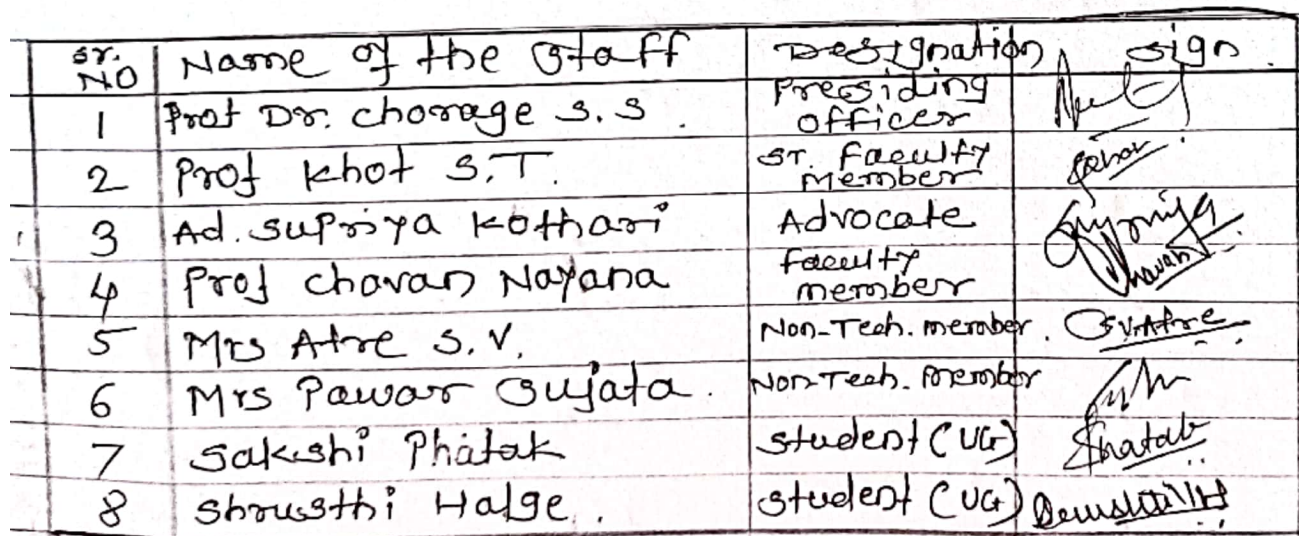 Sr. NO Name of the Staff Designation sign
1 Prof Dr. chorage S.S. Presiding officer
2 Prof Khot S.T. Sr. Faculty Member
3 Ad. Supriya Kothari Advocate
4 Prof chavan Nayana faculty member Chavan
5 Mrs Atre S.V. Non-Tech. member. S.V.Atre
6 Mrs Pawar Sujata. Non-Tech. member
7 Sakshi Phatak student (UG) Phatak
8 Shrusthi Halge. student (UG)